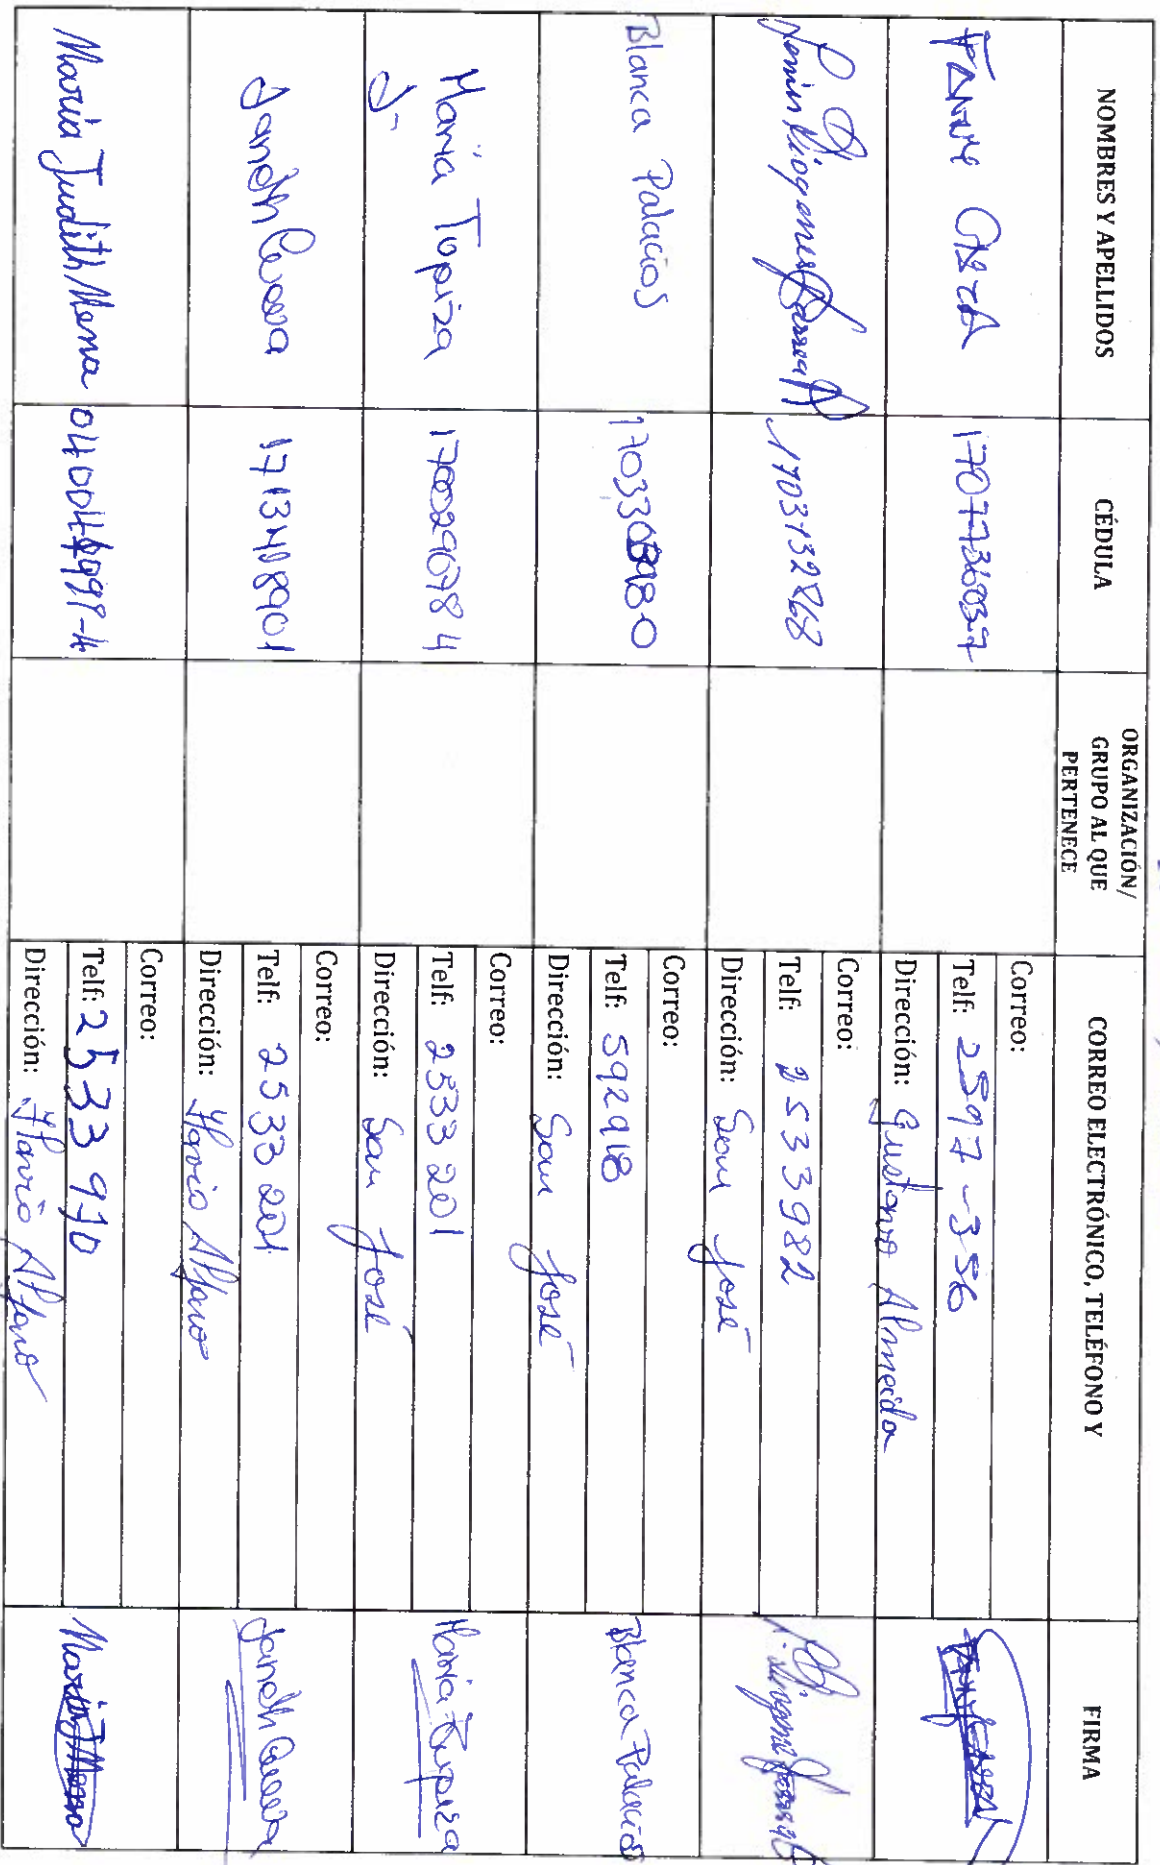 NOMBRES Y APELLIDOS
CÉDULA
ORGANIZACIÓN/
GRUPO AL QUE
PERTENECE
CORREO ELECTRÓNICO, TELÉFONO Y
FIRMA
1707736037
Correo:
Telf: 2597-356
Dirección: Gustavo Almeida
1703132868
Correo:
Telf: 2533982
Dirección: San José
Blanca Palacios
Correo:
Telf: 592918
Dirección: San José
Blanca Palacios
María Tupiza
J
Correo:
Telf: 2533201
Dirección: San José
María Tupiza
Janeth
Correo:
Telf: 2533201
Dirección: Alfaro
Janeth
María Judith Mena
Correo:
Telf: 2533910
Dirección: Alfaro
María J Mena